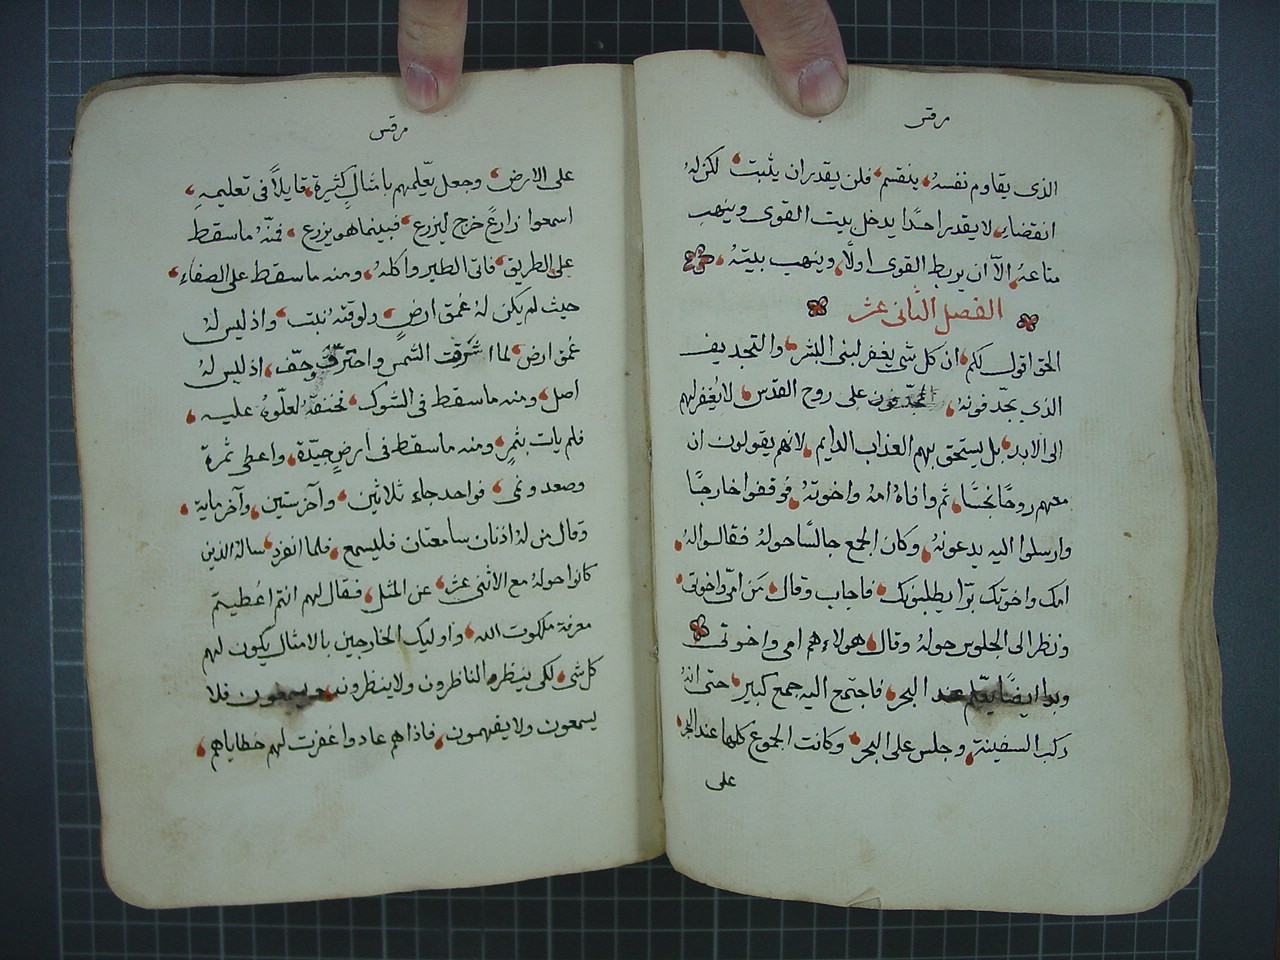 مرقس
الذى يقاوم نفسهُ، ينقسم، فلن يقدر ان يثبت، لكن لهُ
انقضاء، لا يقدر احدًا يدخل بيت القوى وينهب
متاعهُ، الاّ ان يربط القوى اولاً، وينهب بيتهُ،
الفصل الثانى عشر
الحق اقول لكم، ان كل شى يغفر لبنى البشر، والتجديف
الذي يجدفونهُ، على روح القدس، لا يُغفر لهم
الى الابد، بل يستحق بهم العذاب الدايم، لانهم يقولون ان
معهم روحًا نجسًا، ثم وافاهُ امهُ واخوتهُ، فوقفوا خارجًا
وارسلوا اليه يدعونهُ، وكان الجمع جالسًا حولهُ فقالوا لهُ،
امك واخوتك برّا يطلبونك، فاجاب وقال، مَن امّى واخوتى،
ونظر الى الجلوس حولهُ وقال، هولاء هم امى واخوتى
وبدا ايضًا يعلم عند البحر، فاجتمع اليه جمع كبير، حتى انهُ
ركب السفينة، وجلس على البحر، وكانت الجموع كلها عند البحر،
على
مرقس
على الارض، وجعل يعّلمهم بامثالٍ كثيرة، قايلاً فى تعليمهِ،
اسمعوا زارعٌ خرج ليزرع، فبينما هو يزرع، فمنهُ ما سقط
على الطريق، فاتى الطير واكلهُ، ومنه ما سقط على الصفاء،
حيث لم يكن لهُ عُمق ارضٍ، ولوقتهُ نبت، واذ ليس لهُ
عُمق ارض، لما اشرقت الشمس واحترق وجفّ، اذ ليس لهُ
اصل، ومنه ما سقط فى الشوك، فخنقهُ لعلّوهُ عليه،
فلم يات بثمرٍ، ومنه ما سقط فى ارضٍ جيّدة، واعطى ثمرة
وصعد ونمى، فواحد جاء ثلاثين، وآخر ستين، وآخر ماية،
وقال من لهُ اذنان سامعتان فليسمع، فلما انفرد، سالهُ الذين
كانوا حولهُ مع الاثنى عشر، عن المثل، فقال لهم انتم اعُطيتم
معرفة ملكوت الله، واوليك الخارجين بالامثال يكون لهم
كل شى، لكى ينظره الناظرون ولا ينظرون، ويسمعون فلا
يسمعون ولا يفهمون، فاذا هم عادوا غفرت لهم خطاياهم،